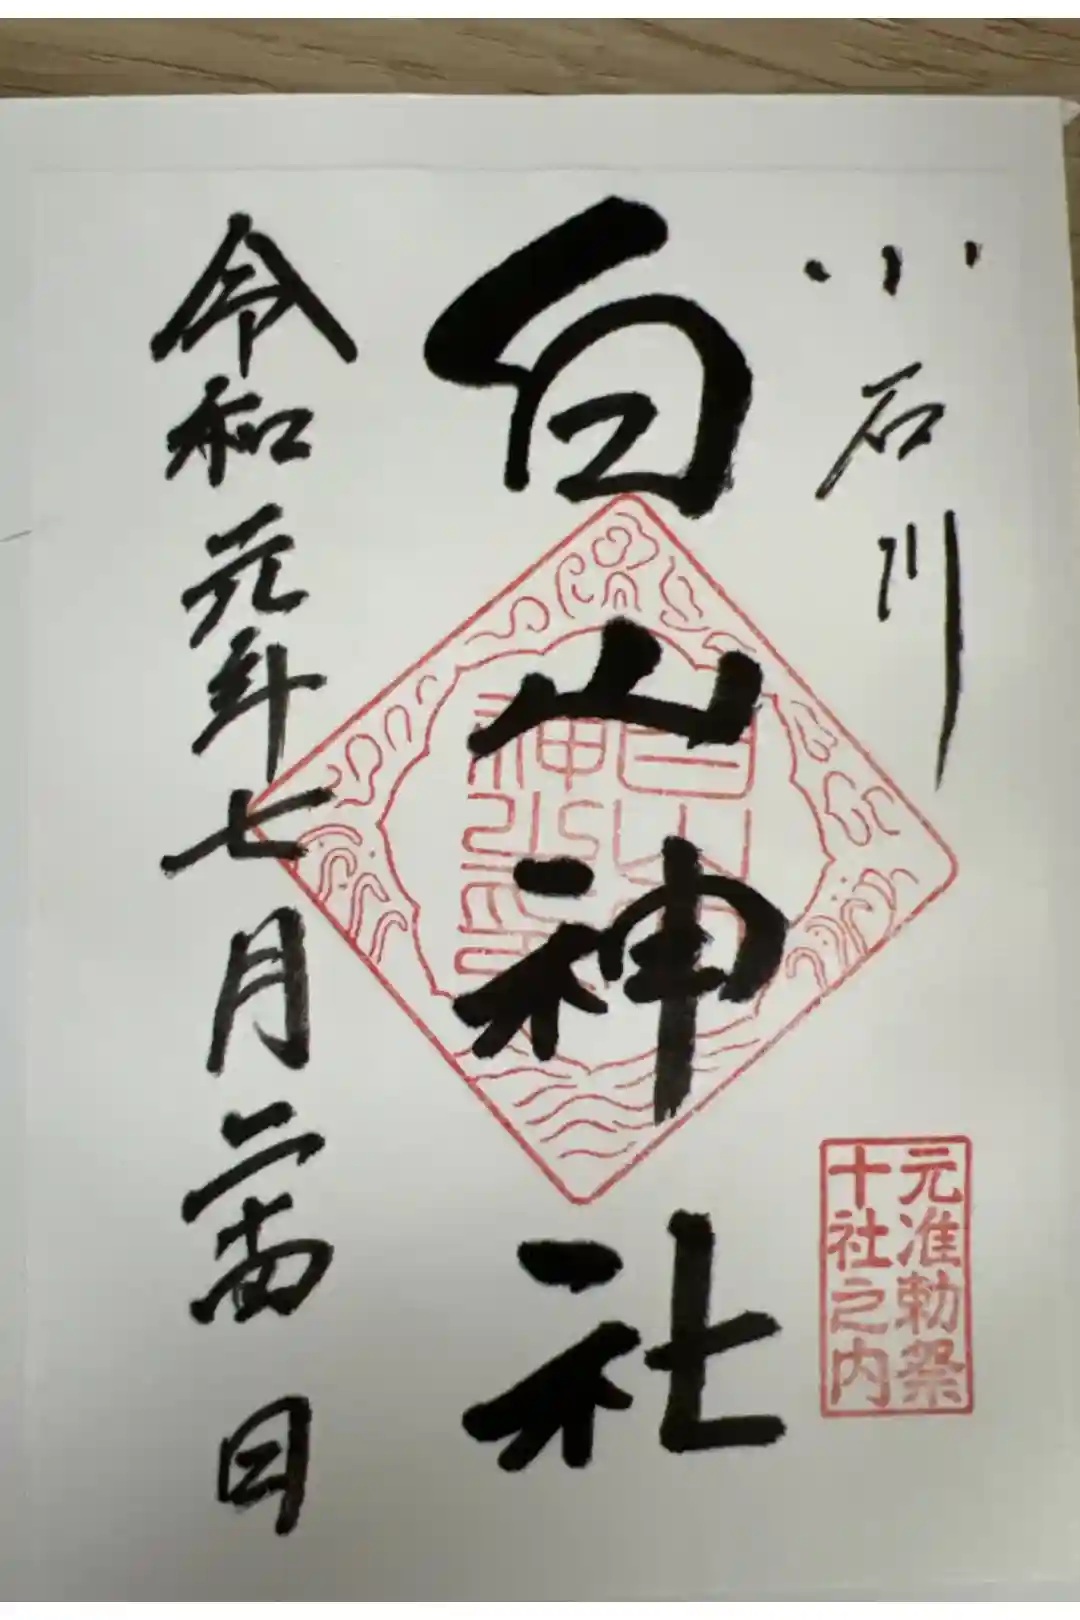 小石川
元准勅祭
十社之内
白山神社
令和元年七月二十四日